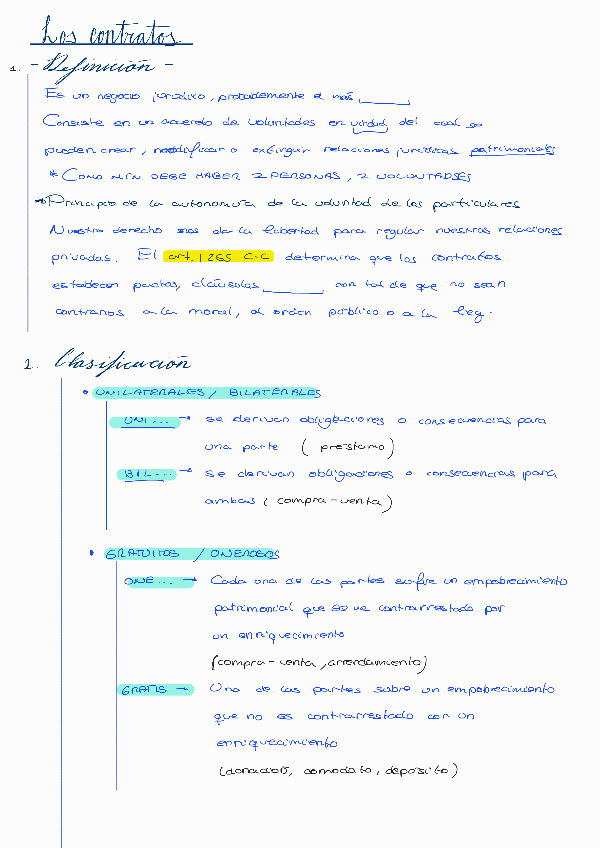 Los contratos
1. - Definición -
Es un negocio jurídico, probablemente el más ______
Consiste en un acuerdo de voluntades en virtud del cual se
pueden crear, modificar o extinguir relaciones jurídicas patrimoniales
* COMO MÍN DEBE HABER 2 PERSONAS, 2 VOLUNTADES
→ Principio de la autonomía de la voluntad de los particulares
Nuestro derecho nos da la libertad para regular nuestras relaciones
privadas. El art. 1265 C.C determina que los contratos
establecen pactos, cláusulas ______ con tal de que no sean
contrarios a la moral, al orden público o a la ley.
2. Clasificación
• UNILATERALES / BILATERALES
UNI... → se derivan obligaciones o consecuencias para
una parte (préstamo)
BIL... → se derivan obligaciones o consecuencias para
ambas (compra-venta)
• GRATUITOS / ONEROSOS
ONE... → Cada una de las partes sufre un empobrecimiento
patrimonial que se ve contrarrestado por
un enriquecimiento
(compra-venta, arrendamiento)
GRATIS → Una de las partes sobre un empobrecimiento
que no es contrarrestado con un
enriquecimiento
(donación, comodato, depósito)